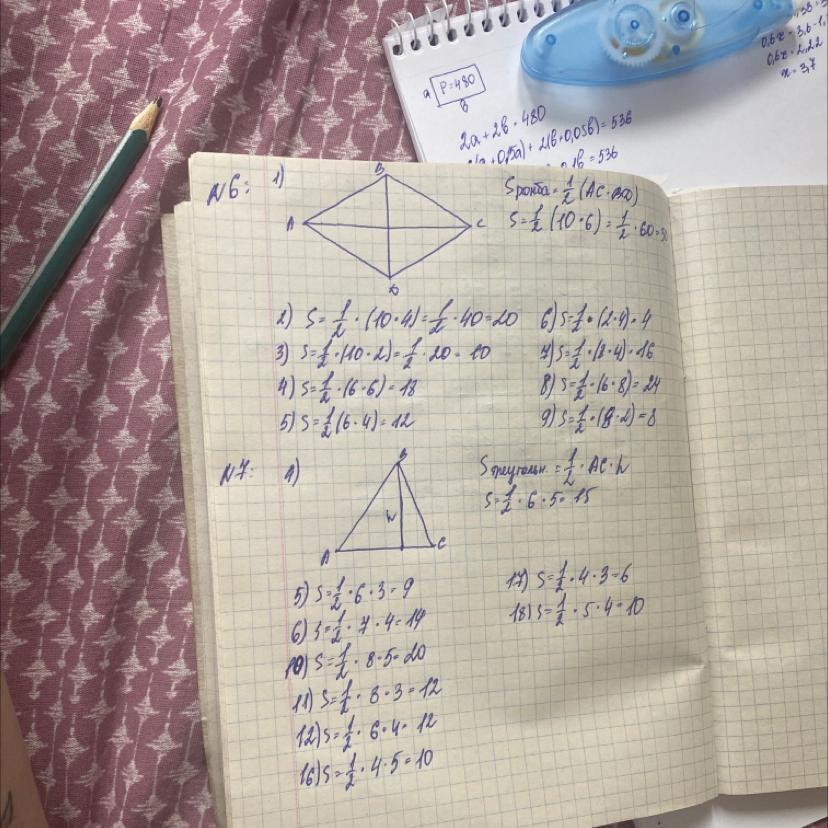 a P=480
b
2a+2b=480
=536
=536
0,6x=3,6-1,
0,6x=2,22
x=3,7
N6: 1)
B
A
C
D
Sромба=1/2(AC·BD)
S=1/2(10·6)=1/2·60=30
2) S=1/2·(10·4)=1/2·40=20
3) S=1/2·(10·2)=1/2·20=10
4) S=1/2·(6·6)=18
5) S=1/2(6·4)=12
6) S=1/2·(2·4)=4
7) S=1/2·(8·4)=16
8) S=1/2·(6·8)=24
9) S=1/2·(8·2)=8
N7: 1)
B
h
A
C
Sтреугольн.=1/2·AC·h
S=1/2·6·5=15
5) S=1/2·6·3=9
6) S=1/2·7·4=14
10) S=1/2·8·5=20
11) S=1/2·8·3=12
12) S=1/2·6·4=12
16) S=1/2·4·5=10
17) S=1/2·4·3=6
18) S=1/2·5·4=10